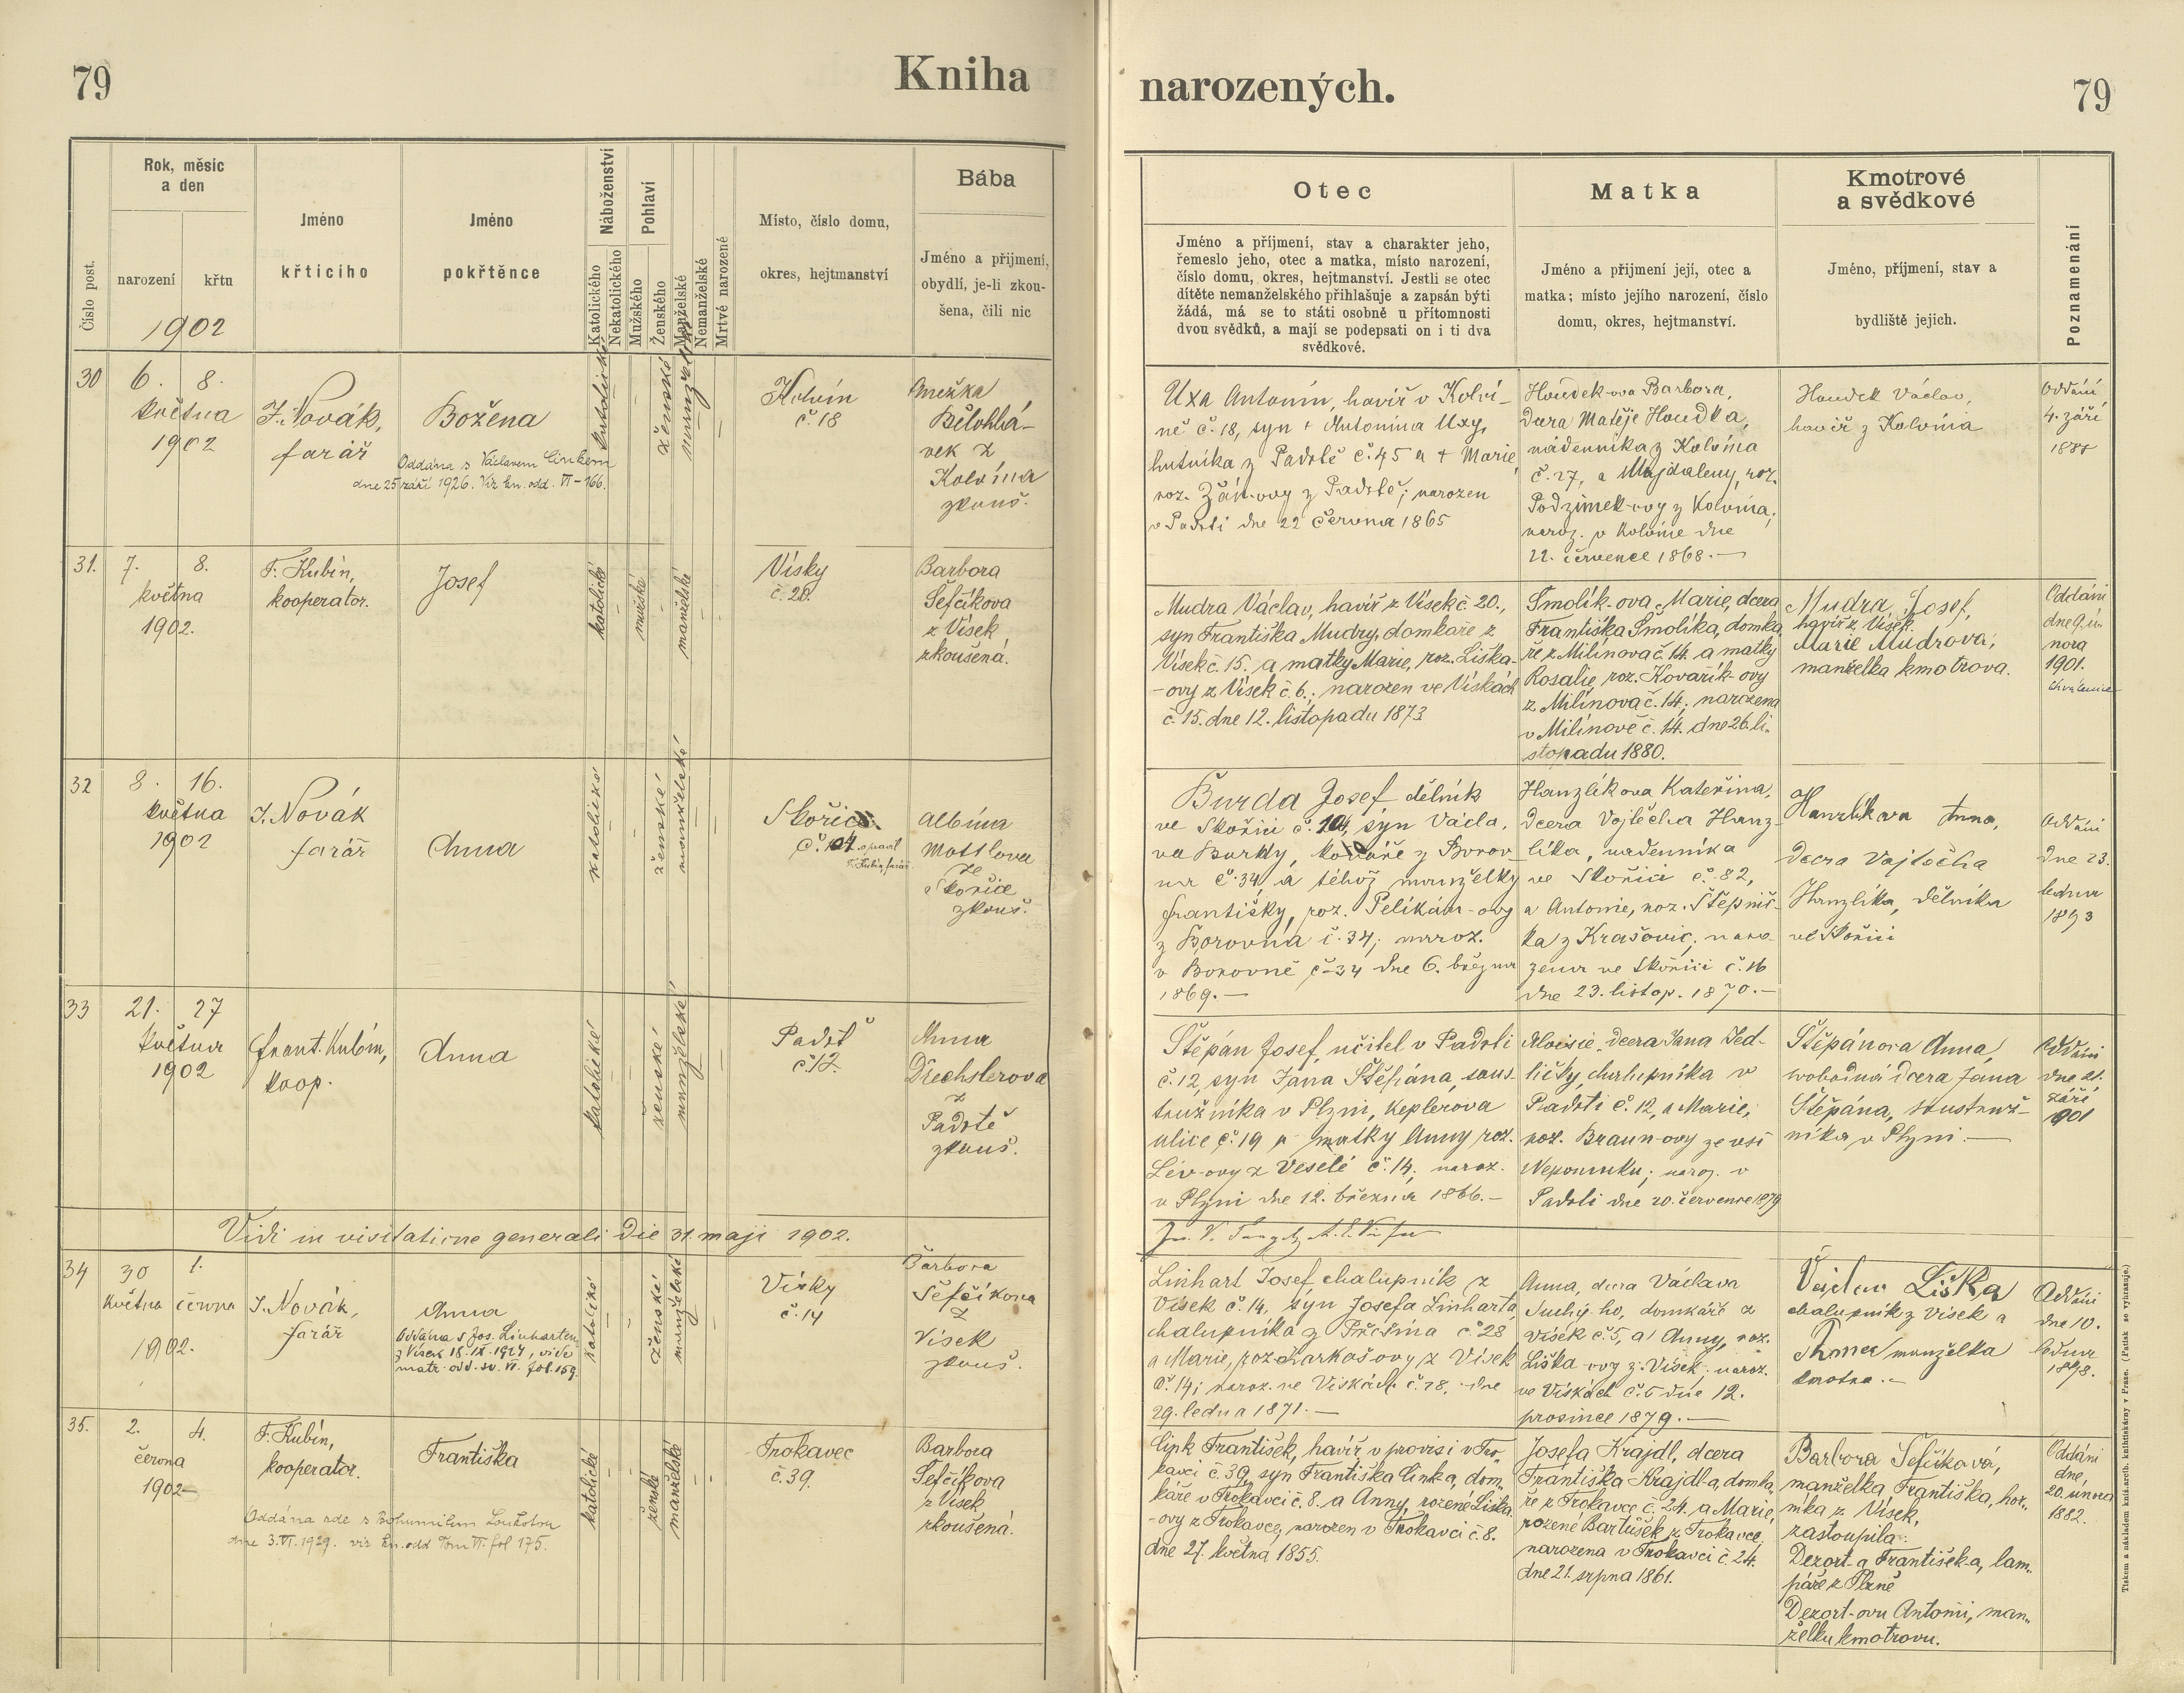 79
Kniha
narozených.
79
Číslo post.
Rok, měsíc
a den
narození
křtu
1902
Jméno
křtícího
Jméno
pokřtěnce
Náboženství
Katolického
Nekatolického
Pohlaví
Mužského
Ženského
Manželské
Nemanželské
Mrtvě narozené
Místo, číslo domu,
okres, hejtmanství
Bába
Jméno a příjmení,
obydlí, je-li zkou-
šena, čili nic
Otec
Jméno a příjmení, stav a charakter jeho,
řemeslo jeho, otec a matka, místo narození,
číslo domu, okres, hejtmanství. Jestli se otec
dítěte nemanželského přihlašuje a zapsán býti
žádá, má se to státi osobně u přítomnosti
dvou svědků, a mají se podepsati on i ti dva
svědkové.
Matka
Jméno a příjmení její, otec a
matka; místo jejího narození, číslo
domu, okres, hejtmanství.
Kmotrové
a svědkové
Jméno, příjmení, stav a
bydliště jejich.
Poznamenání
30
6. 8.
května
1902
J. Novák,
farář
Božena
Oddána s Václavem Cinkem
dne 25 září 1926. Viz kn. odd. VI - 166.
katolické
ženské
manželské
Kolvín
č. 18
Anežka
Bělohlá-
vek z
Kolvína
zkouš.
Uxa Antonín, havíř v Kolví-
ně č. 18, syn † Antonína Uxy,
hutníka z Padrtě č. 45 a † Marie,
roz. Žák-ovy z Padrtě; narozen
v Padrti dne 22 června 1865
Houdek-ova Barbora,
dcera Matěje Houdka,
nádenníka z Kolvína
č. 27, a Majdaleny, roz.
Podzimek-ovy z Kolvína;
naroz. v Kolvíně dne
22. července 1868.—
Houdek Václav,
havíř z Kolvína
Oddáni
4. září
31.
7. 8.
května
1902.
F. Kubín,
kooperátor.
Josef
katolické
mužské
manželské
Vísky
č. 20.
Barbora
Šefčíkova
z Vísek,
zkoušená.
Mudra Václav, havíř z Vísek č. 20.,
syn Františka Mudry, domkáře z
Vísek č. 15. a matky Marie, roz. Liška-
-ovy z Vísek č. 6.; narozen ve Vískách
č. 15. dne 12. listopadu 1873
Smolík-ova Marie, dcera
Františka Smolíka, domká-
ře z Milínova č. 14. a matky
Rosalie, roz. Kovařík-ovy
z Milínova č. 14; narozena
v Milínově č. 14. dne 26. li-
stopadu 1880.
Mudra Josef,
havíř z Vísek.
Marie Mudrová,
manželka kmotrova.
Oddáni
dne 9. ú-
nora
1901.
32
8. 16.
května
1902
J. Novák
farář
Anna
katolické
ženské
manželské
Skořice
č. 104 opravil
F. Kubín, farář
Albína
Mottlova
ze
Skořice
zkouš.
Burda Josef dělník
ve Skořici č. 104, syn Václa-
va Burdy, kováře z Borov-
na č. 34, a téhož manželky
Františky, roz. Pelikán-ovy
z Borovna č. 34; naroz.
v Borovně č. 34 dne 6. března
1869.—
Hanzlíkova Kateřina,
dcera Vojtěcha Hanz-
líka, nádenníka
ve Skořici č. 82,
a Antonie, roz. Štěpnič-
ka z Krašovic; naro-
zena ve Skořici č. 16
dne 23. listop. 1870.—
Hanzlíkova Anna,
dcera Vojtěcha
Hanzlíka, dělníka
ve Skořici
Oddáni
dne 23.
ledna
1893
33
21. 27
května
1902
Frant. Kubín,
koop.
Anna
katolické
ženské
manželské
Padrť
č. 12.
Anna
Drechslerova
z
Padrtě
zkouš.
Štěpán Josef, učitel v Padrti
č. 12, syn Jana Štěpána, sous-
tružníka v Plzni, Keplerova
ulice č. 19 a matky Anny roz.
Lév-ovy z Veselé č. 14; naroz.
v Plzni dne 12. března 1866.—
Aloisie, dcera Jana Jed-
ličky, chalupníka v
Padrti č. 12, a Marie,
roz. Braun-ovy ze vsi
Nepomuku; naroz. v
Padrti dne 20. července 1879
Štěpánova Anna,
svobodná dcera Jana
Štěpána, soustruž-
níka v Plzni.—
Oddáni
dne 21.
září
1901
Vidi in visitatione generali die 31. maji 1902.
34
30 1.
května června
1902.
J. Novák,
farář
Anna
Oddána s Jos. Linhartem
z Vísek 18. IX. 1924, vide
matr. odd. sv. VI. fol. 159.
katolické
ženské
manželské
Vísky
č. 14
Barbora
Šefčíkova
z
Vísek
zkouš.
Linhart Josef chalupník z
Vísek č. 14, syn Josefa Linharta,
chalupníka z Příčina č. 28
a Marie, roz. Karkoš-ovy z Vísek
č. 14; naroz. ve Vískách č. 28, dne
29. ledna 1871.—
Anna, dcera Václava
Suchý-ho, domkáře z
Vísek č. 5, a Anny, roz.
Liška-ovy z Vísek; naroz.
ve Vískách č. 5 dne 12.
prosince 1879.—
Václav Liška
chalupník z Vísek a
Anna manželka
kmotra.—
Oddáni
dne 10.
ledna
1898.
35.
2. 4.
června
1902
F. Kubín,
kooperátor.
Františka
Oddána zde s Bohumilem Loukotou
dne 3. VI. 1929. viz kn. odd Tom VI. fol 175.
katolické
ženské
manželské
Trokavec
č. 39.
Barbora
Šefčíkova
z Vísek
zkoušená.
Cink František, havíř v provisi v Tro-
kavci č. 39, syn Františka Cinka, dom-
káře v Trokavci č. 8. a Anny, rozené Liška
-ovy z Trokavce, narozen v Trokavci č. 8.
dne 27. května 1855.
Josefa Krajdl, dcera
Františka Krajdl-a, domká-
ře z Trokavce č. 24. a Marie,
rozené Bartůšek z Trokavce
narozena v Trokavci č. 24.
dne 21. srpna 1861.
Barbora Šefčíková,
manželka Františka, hor-
níka z Vísek,
zastoupila:
Dezort-a František-a, lam-
páře z Plzně
Dezort-ovu Antonii, man-
želku kmotrovu.
Oddáni
dne
20. února
1882.
Tiskem a nákladem kníž. arcib. knihtiskárny v Praze. (Patisk se vyhrazuje.)